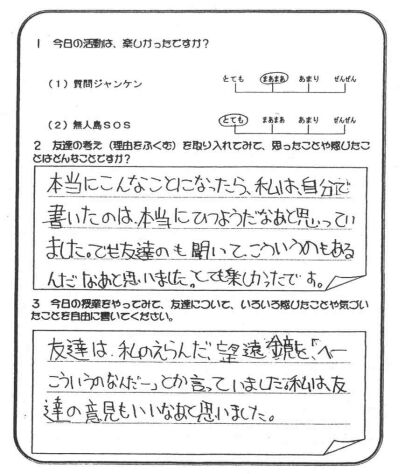 1 今日の活動は、楽しかったですか?
(1)質問ジャンケン とても まあまあ あまり ぜんぜん
(2)無人島SOS とても まあまあ あまり ぜんぜん
2 友達の考え(理由をふくむ)を取り入れてみて、思ったことや感じたこ
とはどんなことですか?
本当にこんなことになったら、私は、自分で
書いたのは、本当にひつようだなあと思ってい
ました。でも友達のも聞いて、こういうのもある
んだなあと思いました。とても楽しかったです。
3 今日の授業をやってみて、友達について、いろいろ感じたことや気づい
たことを自由に書いてください。
友達は、私のえらんだ、望遠鏡を、「へー
こういうのなんだー」とか言っていました。私は、友
達の意見もいいなあと思いました。